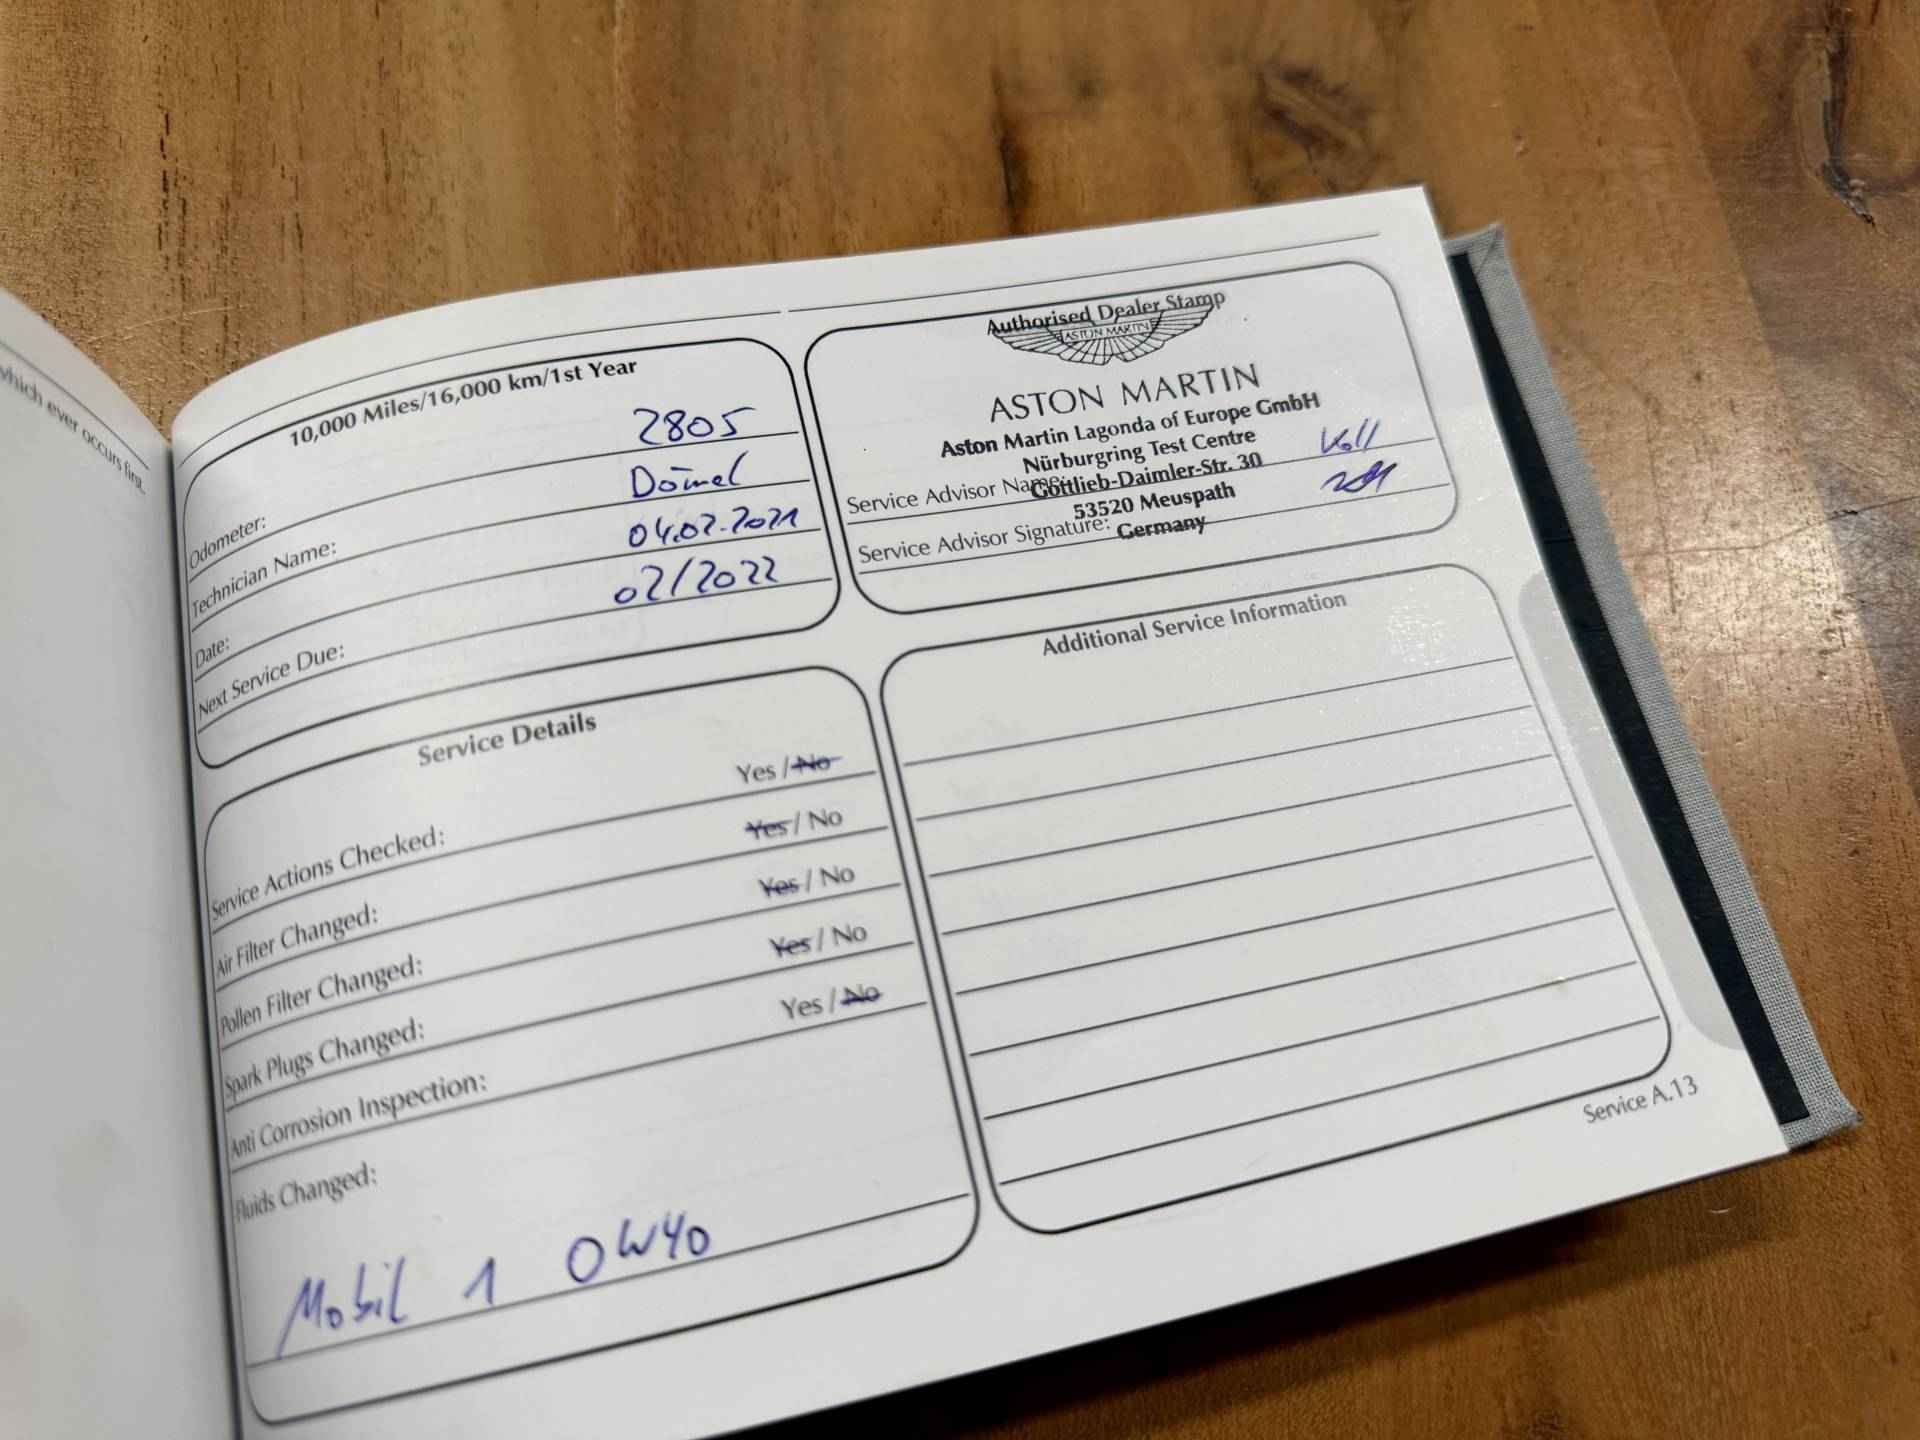 which ever occurs first.
10,000 Miles/16,000 km/1st Year
Odometer: 2805
Technician Name: Dömel
Date: 04.02.2021
Next Service Due: 02/2022
Authorised Dealer Stamp
ASTON MARTIN
ASTON MARTIN
Aston Martin Lagonda of Europe GmbH
Nürburgring Test Centre
Gottlieb-Daimler-Str. 30
53520 Meuspath
Germany
Service Advisor Name: Voll
Service Advisor Signature:
Service Details
Service Actions Checked: Yes / No
Air Filter Changed: Yes / No
Pollen Filter Changed: Yes / No
Spark Plugs Changed: Yes / No
Anti Corrosion Inspection: Yes / No
Fluids Changed:
Mobil 1 0W40
Additional Service Information
Service A.13